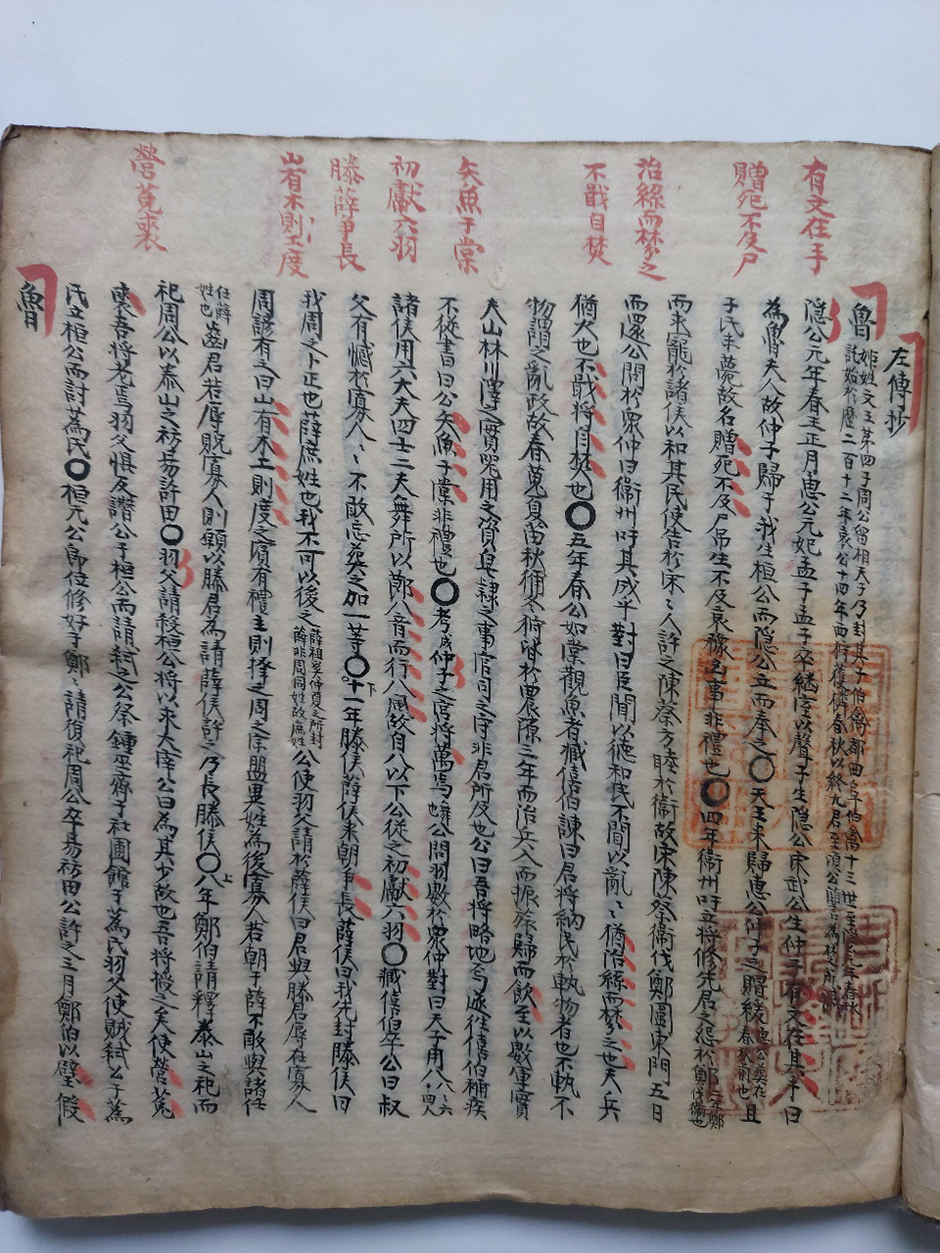 有文在手
贈死不及尸
治絲而棼之
不戢自焚
矢魚于棠
初獻六羽
滕薛爭長
山有木則工度
營菟裘
左傳抄
魯
姬姓文王第四子周公留相天子乃封其子伯禽都曲阜伯禽十三世至隱公元年春秋
託始於歷二百十二年哀公十四年西狩獲麟春秋以終九君至頃公
隱公元年春王正月惠公元妃孟子孟子卒継室以聲子生隱公宋武公生仲子有文在其手曰
為魯夫人故仲子歸于我生桓公而隱公立而奉之〇天王来歸惠公仲子之賵緩
惠公葬在
春秋前也
且
子氏未薨故名贈死不及尸吊生不及哀豫凶事非禮也〇四年衛州吁立將修先君之怨於鄭
二年鄭
伐衛也
而求寵於諸侯以和其民使告於宋〻人許之陳蔡方睦於衛故宋陳蔡衛伐鄭圍東門五日
而還公問於衆仲曰衛州吁其成乎對曰臣聞以德和民不聞以亂〻猶治絲而棼之也夫兵
猶火也不戢將自焚也〇五年春公如棠觀魚者臧僖伯諫曰君將納民於軌物者也不軌不
物謂之亂政故春蒐夏苗秋狝冬狩皆於農隙三年而治兵入而振旅歸而飲至以數軍實
夫山林川澤之實器用之資皂隷之事官司之守非君所及也公曰吾將略地焉遂往僖伯稱疾
不從書曰公矢魚于棠非禮也〇考成仲子之宮將萬焉
公問羽數於衆仲對曰天子用八
諸侯用六大夫四士二夫舞所以節八音而行八風故自八以下公從之初獻六羽〇臧僖伯卒公曰叔
父有憾於寡人〻不敢忘葬之加一等〇十一年滕侯薛侯来朝爭長薛侯曰我先封滕侯曰
我周之卜正也薛庶姓也我不可以後之
薛祖奚仲夏之所封
薛非周同姓故庶姓
公使羽父請於薛侯曰君與滕君辱在寡人
周諺有之曰山有木工則度之賓有禮主則擇之周之宗盟異姓為後寡人若朝于薛不敢與諸任
任薛
姓也
齒君若辱貺寡人則願以滕君為請薛侯許之乃長滕侯〇八年鄭伯請釋泰山之祀而
祀周公以泰山之祊易許田〇羽父請殺桓公將以求大宰公曰為其少故也吾將授之矣使營菟
裘吾將老焉羽父惧反譖公于桓公而請弒之公祭鍾巫齊于社圃館于蒍氏羽父使賊弒公于蒍
氏立桓公而討蒍氏〇桓元公即位修好于鄭〻請復祀周公卒易祊田公許之三月鄭伯以璧假
魯